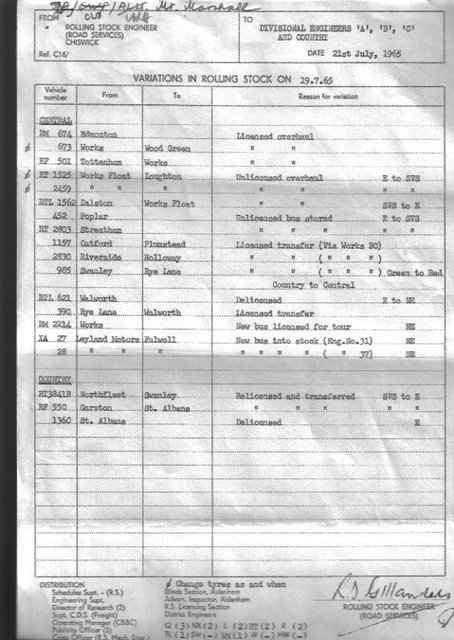 Mr. Marshall
FROM TO
ROLLING STOCK ENGINEER DIVISIONAL ENGINEERS 'A', 'B', 'C'
(ROAD SERVICES) AND COUNTRY
CHISWICK
Ref. C16/ DATE 21st July, 1965
VARIATIONS IN ROLLING STOCK ON 19.7.65
Vehicle number From To Reason for variation
CENTRAL
RM 674 Edmonton Licensed overhaul
673 Works Wood Green " "
RF 501 Tottenham Works " "
RT 1525 Works Float Loughton Unlicensed overhaul E to SVS
2459 " " " " " " "
RTL 1562 Dalston Works Float " " SVS to E
452 Poplar Unlicensed bus stored E to SVS
RT 2803 Streatham " " " " "
1157 Catford Plumstead Licensed transfer (Via Works BO)
2830 Riverside Holloway " " ( " " " )
985 Swanley Rye Lane " " ( " " " ) Green to Red
Country to Central
RTL 621 Walworth Delicensed E to NE
390 Rye Lane Walworth Licensed transfer
RM 2214 Works New bus licensed for tour NE
XA 27 Leyland Motors Fulwell New bus into stock (Eng.No.31) NE
28 " " " " " " " ( " 37) NE
COUNTRY
RT3841B Northfleet Swanley Relicensed and transferred SVS to E
RF 550 Garston St. Albans " " " " "
1360 St. Albans Delicensed E
DISTRIBUTION ø Change tyres as and when
Schedules Supt. - (R.S.) Blinds Section, Aldenham
Engineering Supt. Advert. Inspector, Aldenham
Director of Research (2) R.S. Licensing Section
Supt. C.D.S. (Freight) District Engineers
Operating Manager (CB&C)
Publicity Officer (5) Q (3) NX (2) L (2) (2) R (2)
Costs Officer (R.S. Mech. Engr.) TL (1) SW (-) (1) W (-) HW (-)
ROLLING STOCK ENGINEER
(ROAD SERVICES)